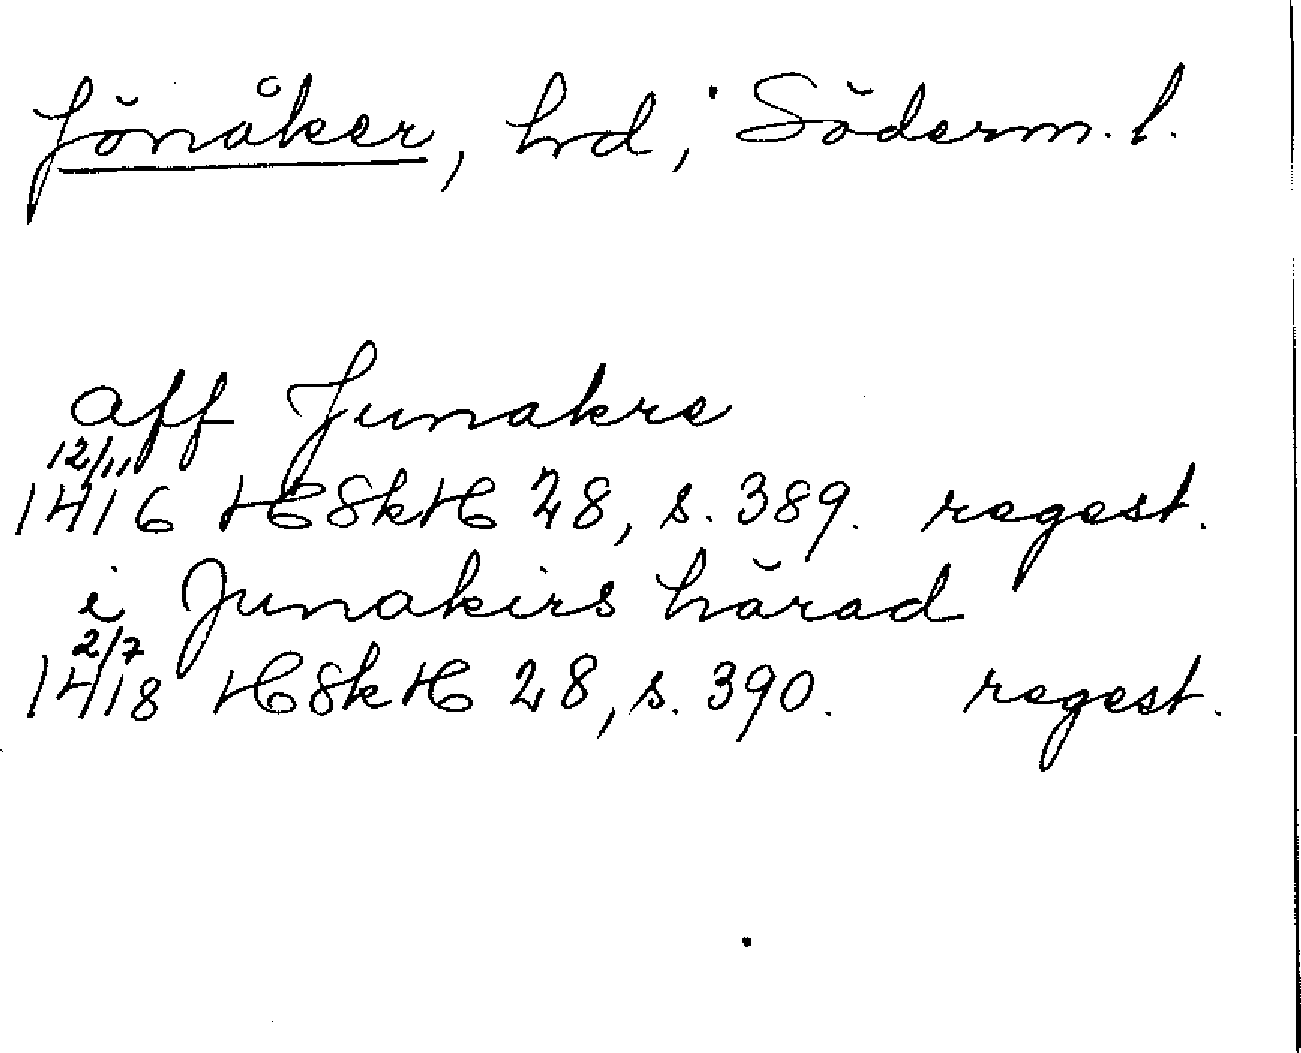 Jönåker, hd, Söderm. l.
aff Junakre
12/11
1416 HSkH 28, s. 389. regest.
i Junakirs härad
2/7
1418 HSkH 28, s. 390. regest.